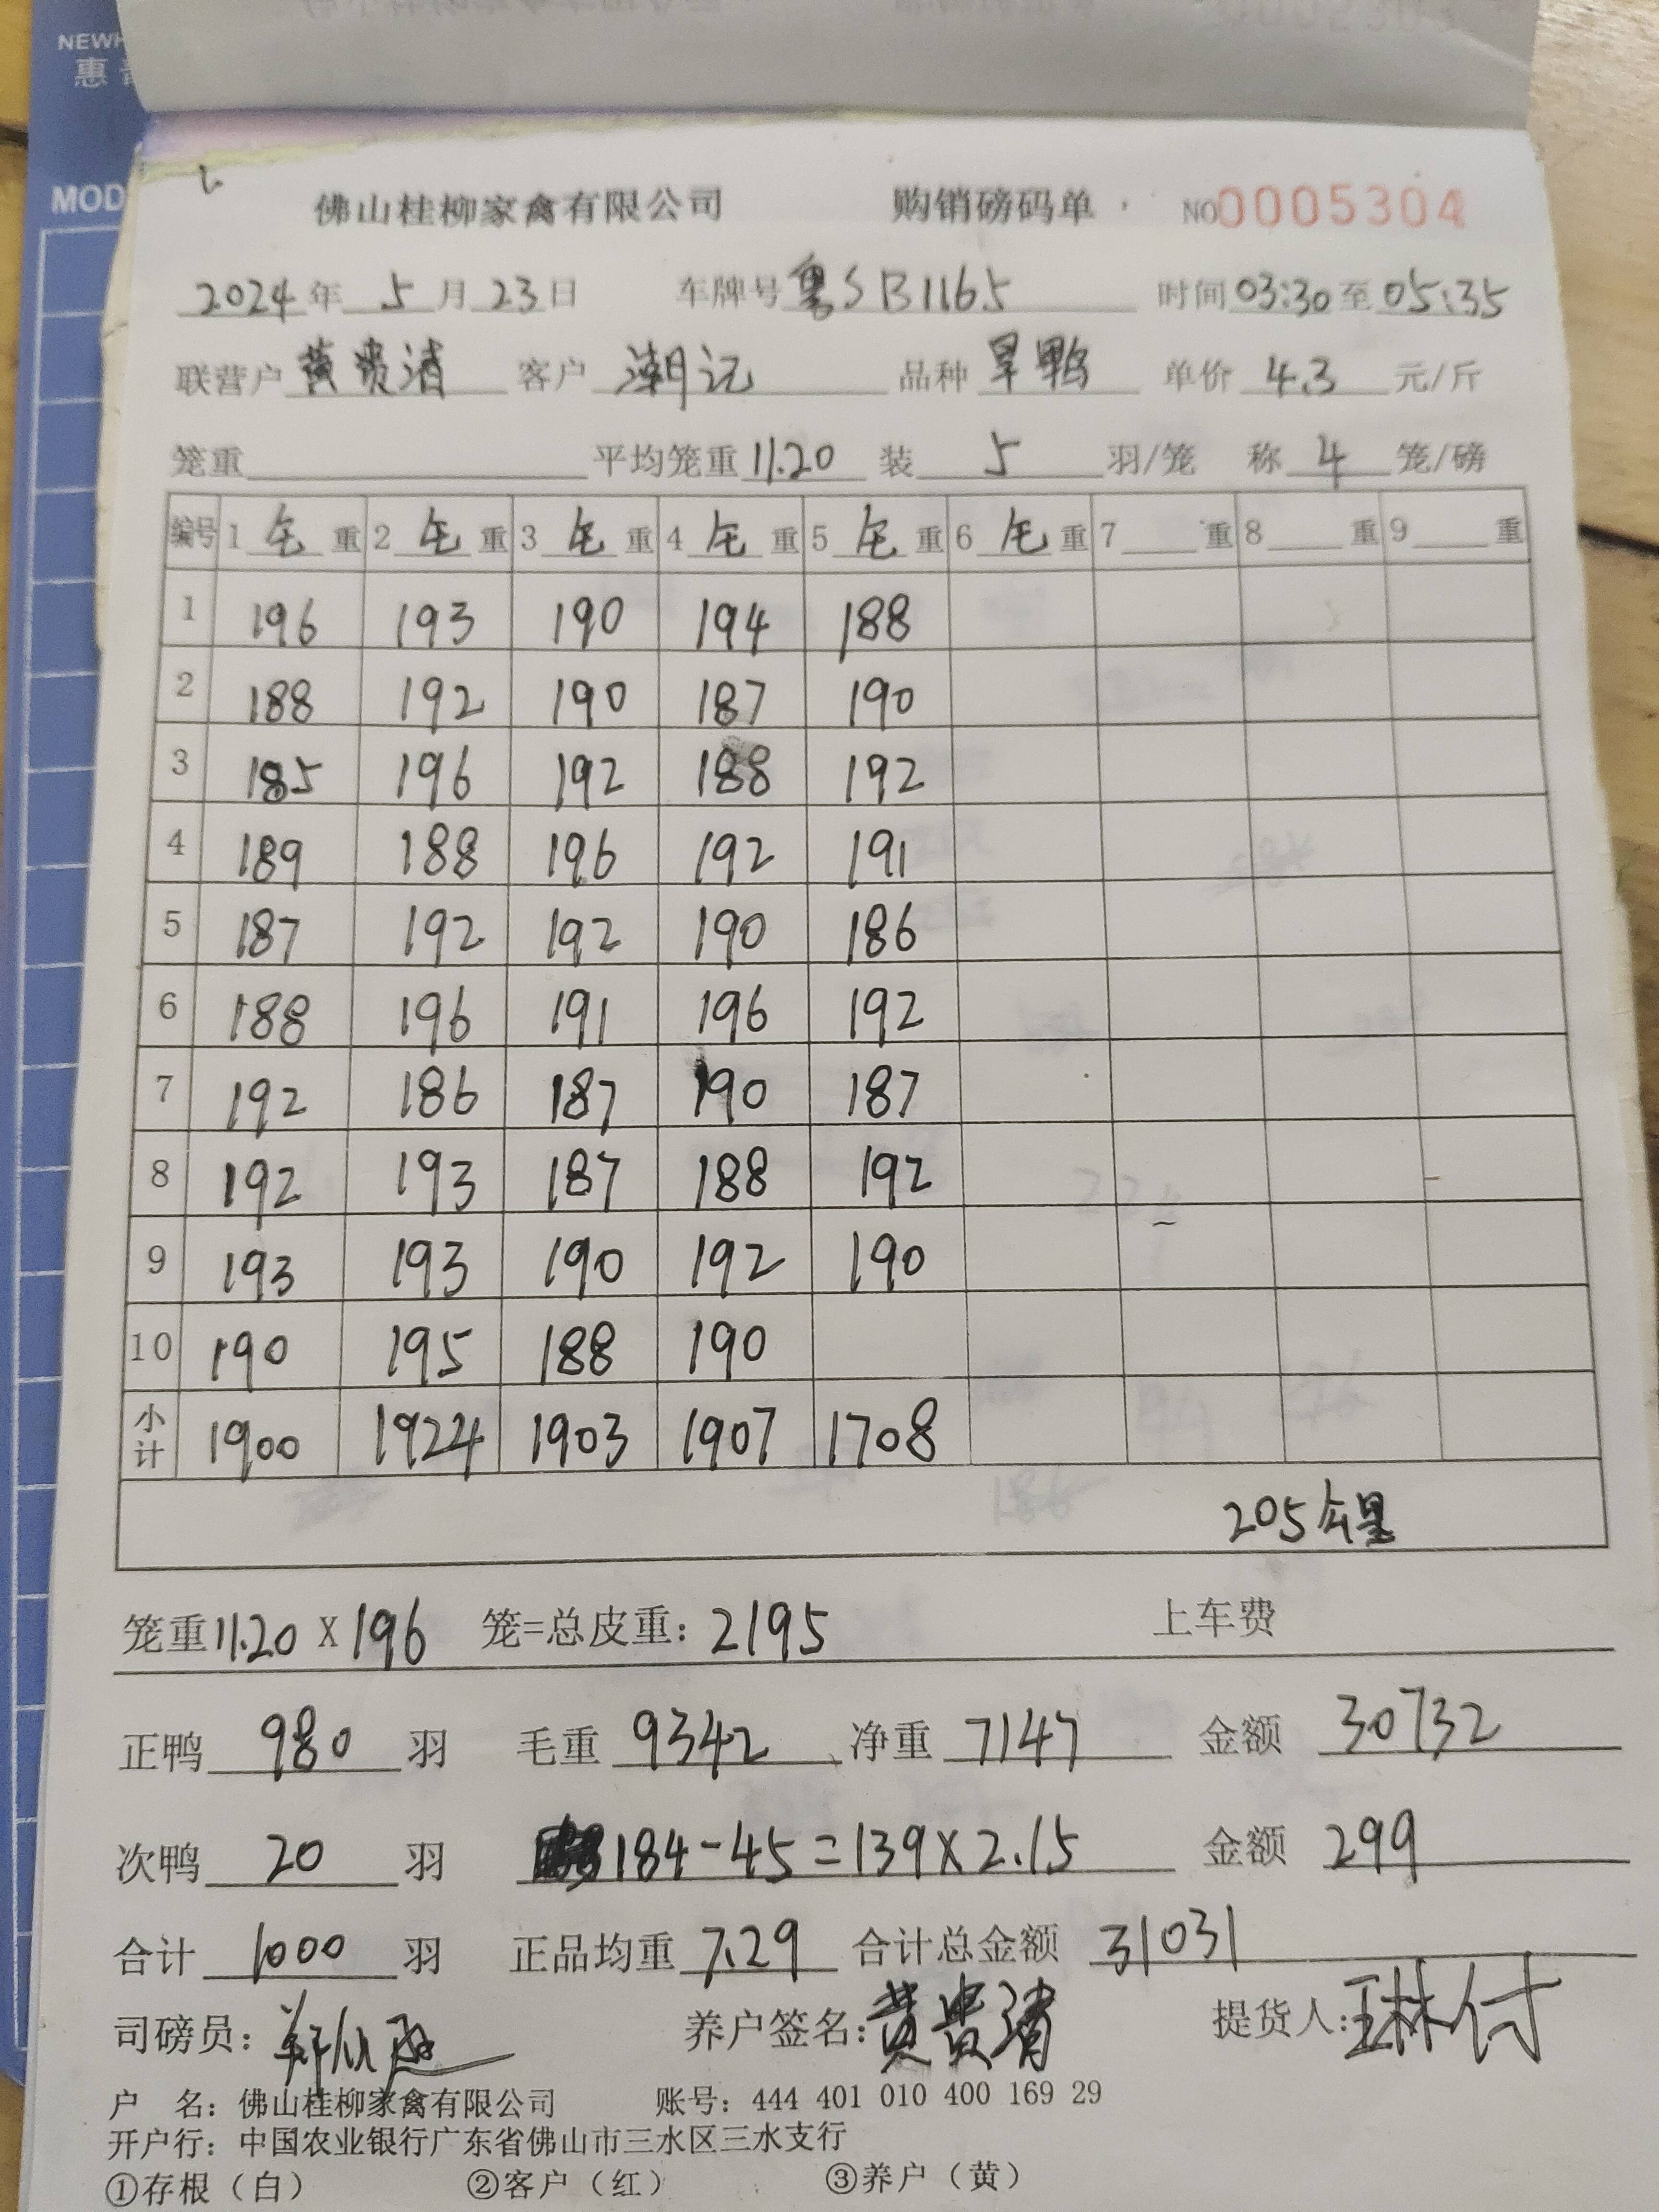 NEWH
惠
MOD
佛山桂柳家禽有限公司 购销磅码单 NO0005304
2024年 5月23日 车牌号 粤SB1165 时间 03:30 至 05:35
联营户 黄贵清 客户 潮记 品种 旱鸭 单价 4.3 元/斤
笼重 平均笼重 11.20 装 5 羽/笼 称 4 笼/磅
编号 1 毛 重 2 毛 重 3 毛 重 4 毛 重 5 毛 重 6 毛 重 7 重 8 重 9 重
1 196 193 190 194 188
2 188 192 190 187 190
3 185 196 192 188 192
4 189 188 196 192 191
5 187 192 192 190 186
6 188 196 191 196 192
7 192 186 187 190 187
8 192 193 187 188 192
9 193 193 190 192 190
10 190 195 188 190
小计 1900 1924 1903 1907 1708
205公里
笼重 11.20 X 196 笼=总皮重: 2195 上车费
正鸭 980 羽 毛重 9342 净重 7147 金额 30732
次鸭 20 羽 184-45=139×2.15 金额 299
合计 1000 羽 正品均重 7.29 合计总金额 31031
司磅员: 养户签名: 黄贵清 提货人:
户 名: 佛山桂柳家禽有限公司 账号: 444 401 010 400 169 29
开户行: 中国农业银行广东省佛山市三水区三水支行
①存根（白） ②客户（红） ③养户（黄）